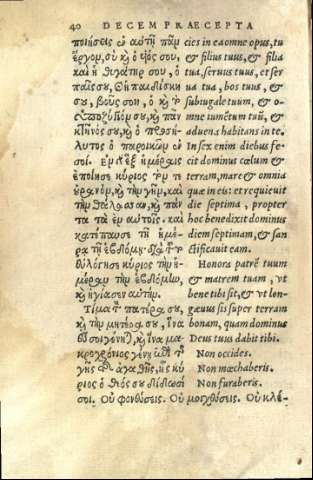 40 DECEM PRAECEPTA
ποιήσεις ἐν αὐτῇ πᾶν
ἔργον, σὺ κὶ ὁ υἱός σου,
καὶ ἡ θυγάτηρ σου, ὁ
παῖς σου, κὶ ἡ παιδίσκη
σου, βοῦς σου, ὁ κὶ τὸ
ὑποζύγιόν σου, κὶ πᾶν
κτῆνός σου, κὶ ὁ προσή-
λυτος ὁ παροικῶν ἐν
σοί. Ἐν γὸ ἓξ ἡμέραις
ἐποίησε κύριος τὸν τε
οὐρανὸν, κὶ τὴν γῆν, καὶ
τὴν θάλασσαν, κὶ πάν
τα τὰ ἐν αὐτοῖς· καὶ
κατέπαυσε τῇ ἡμέ-
ρᾳ τῇ ἑβδόμῃ· διὰ τοῦτο
εὐλόγησε κύριος τὴν ἡ-
μέραν τὴν ἑβδόμην,
κὶ ἡγίασεν αὐτήν.
Τίμα τὸν πατέρα σου,
κὶ τὴν μητέρα σου, ἵνα
εὖ σοι γένηται, κὶ ἵνα μα-
κροχρόνιος γένῃ ἐπὶ τῆς
γῆς τῆς ἀγαθῆς, ἧς κύ-
ριος ὁ θεός σου δίδωσί
σοι. Οὐ φονεύσεις. Οὐ μοιχεύσεις. Οὐ κλέ-
cies in ea omne opus, tu
& filius tuus, & filia
tua, seruus tuus, et ser
ua tua, bos tuus, &
subiugale tuum, & o-
mne iumētum tuū, &
aduena habitans in te.
In sex enim diebus fe-
cit dominus cœlum &
terram, mare & omnia
quæ in eis: et requieuit
die septima, propter
hoc benedixit dominus
diem septimam, & san
ctificauit eam.
Honora patrē tuum
& matrem tuam, vt
bene tibi sit, & vt lon-
gæuus sis super terram
bonam, quam dominus
Deus tuus dabit tibi.
Non occides.
Non mœchaberis.
Non furaberis.